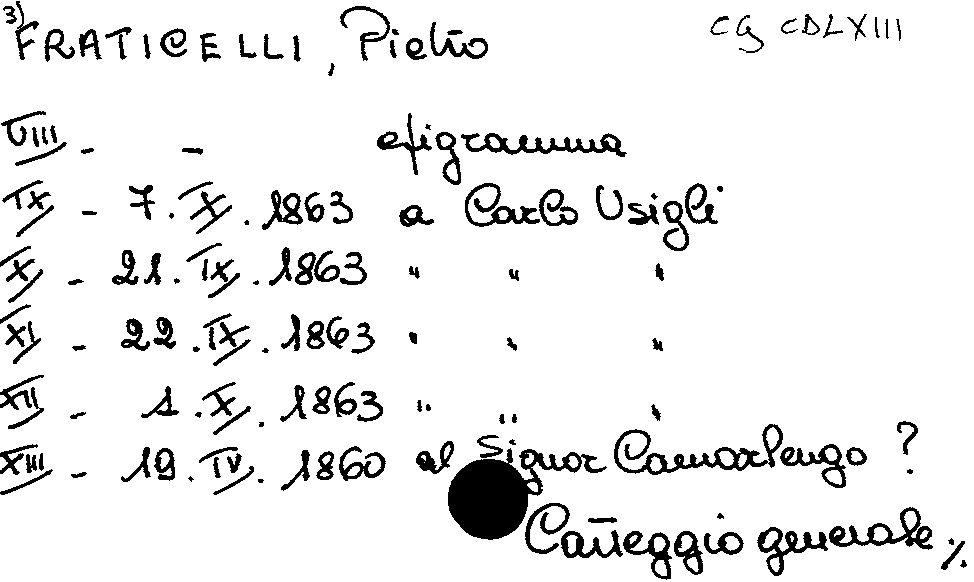 3)
FRATICELLI, Pietro CG CDLXIII
VIII - - epigramma
IX - 7.X.1863 a Carlo Usigli
X - 21.IX.1863 " " "
XI - 22.IX.1863 " " "
XII - 1.X.1863 " " "
XIII - 19.IV.1860 al Signor Camarlengo ?
Carteggio generale ./.